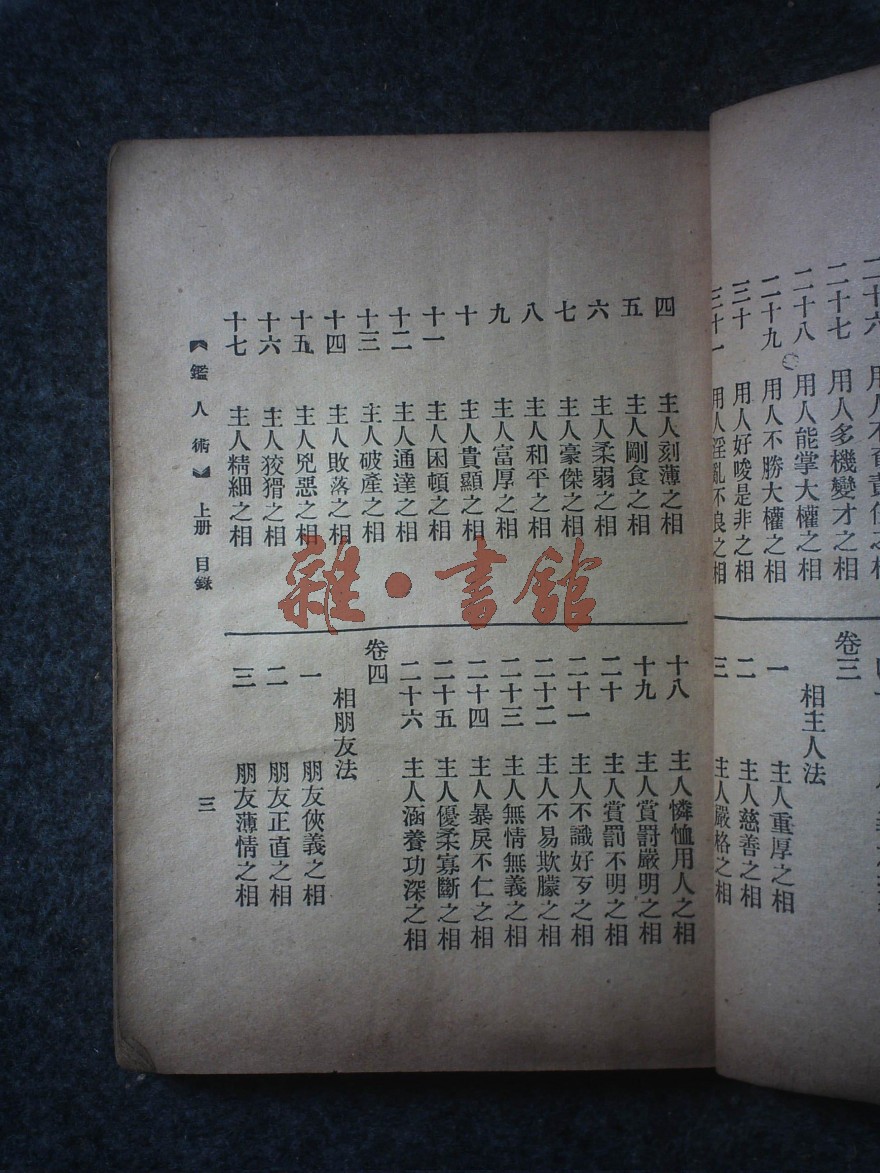 二十六 用人不負責任之相
二十七 用人多機變才之相
二十八 用人能掌大權之相
二十九 用人不勝大權之相
三十 用人好唆是非之相
三十一 用人淫亂不良之相
卷三
相主人法
一 主人重厚之相
二 主人慈善之相
三 主人嚴格之相
四 主人刻薄之相
五 主人剛食之相
六 主人柔弱之相
七 主人豪傑之相
八 主人和平之相
九 主人富厚之相
十 主人貴顯之相
十一 主人困頓之相
十二 主人通達之相
十三 主人破產之相
十四 主人敗落之相
十五 主人兇惡之相
十六 主人狡猾之相
十七 主人精細之相
十八 主人憐恤用人之相
十九 主人賞罰嚴明之相
二十 主人賞罰不明之相
二十一 主人不識好歹之相
二十二 主人不易欺朦之相
二十三 主人無情無義之相
二十四 主人暴戾不仁之相
二十五 主人優柔寡斷之相
二十六 主人涵養功深之相
卷四
相朋友法
一 朋友俠義之相
二 朋友正直之相
三 朋友薄情之相
【鑑人術】 上册 目錄
三
雜·書館